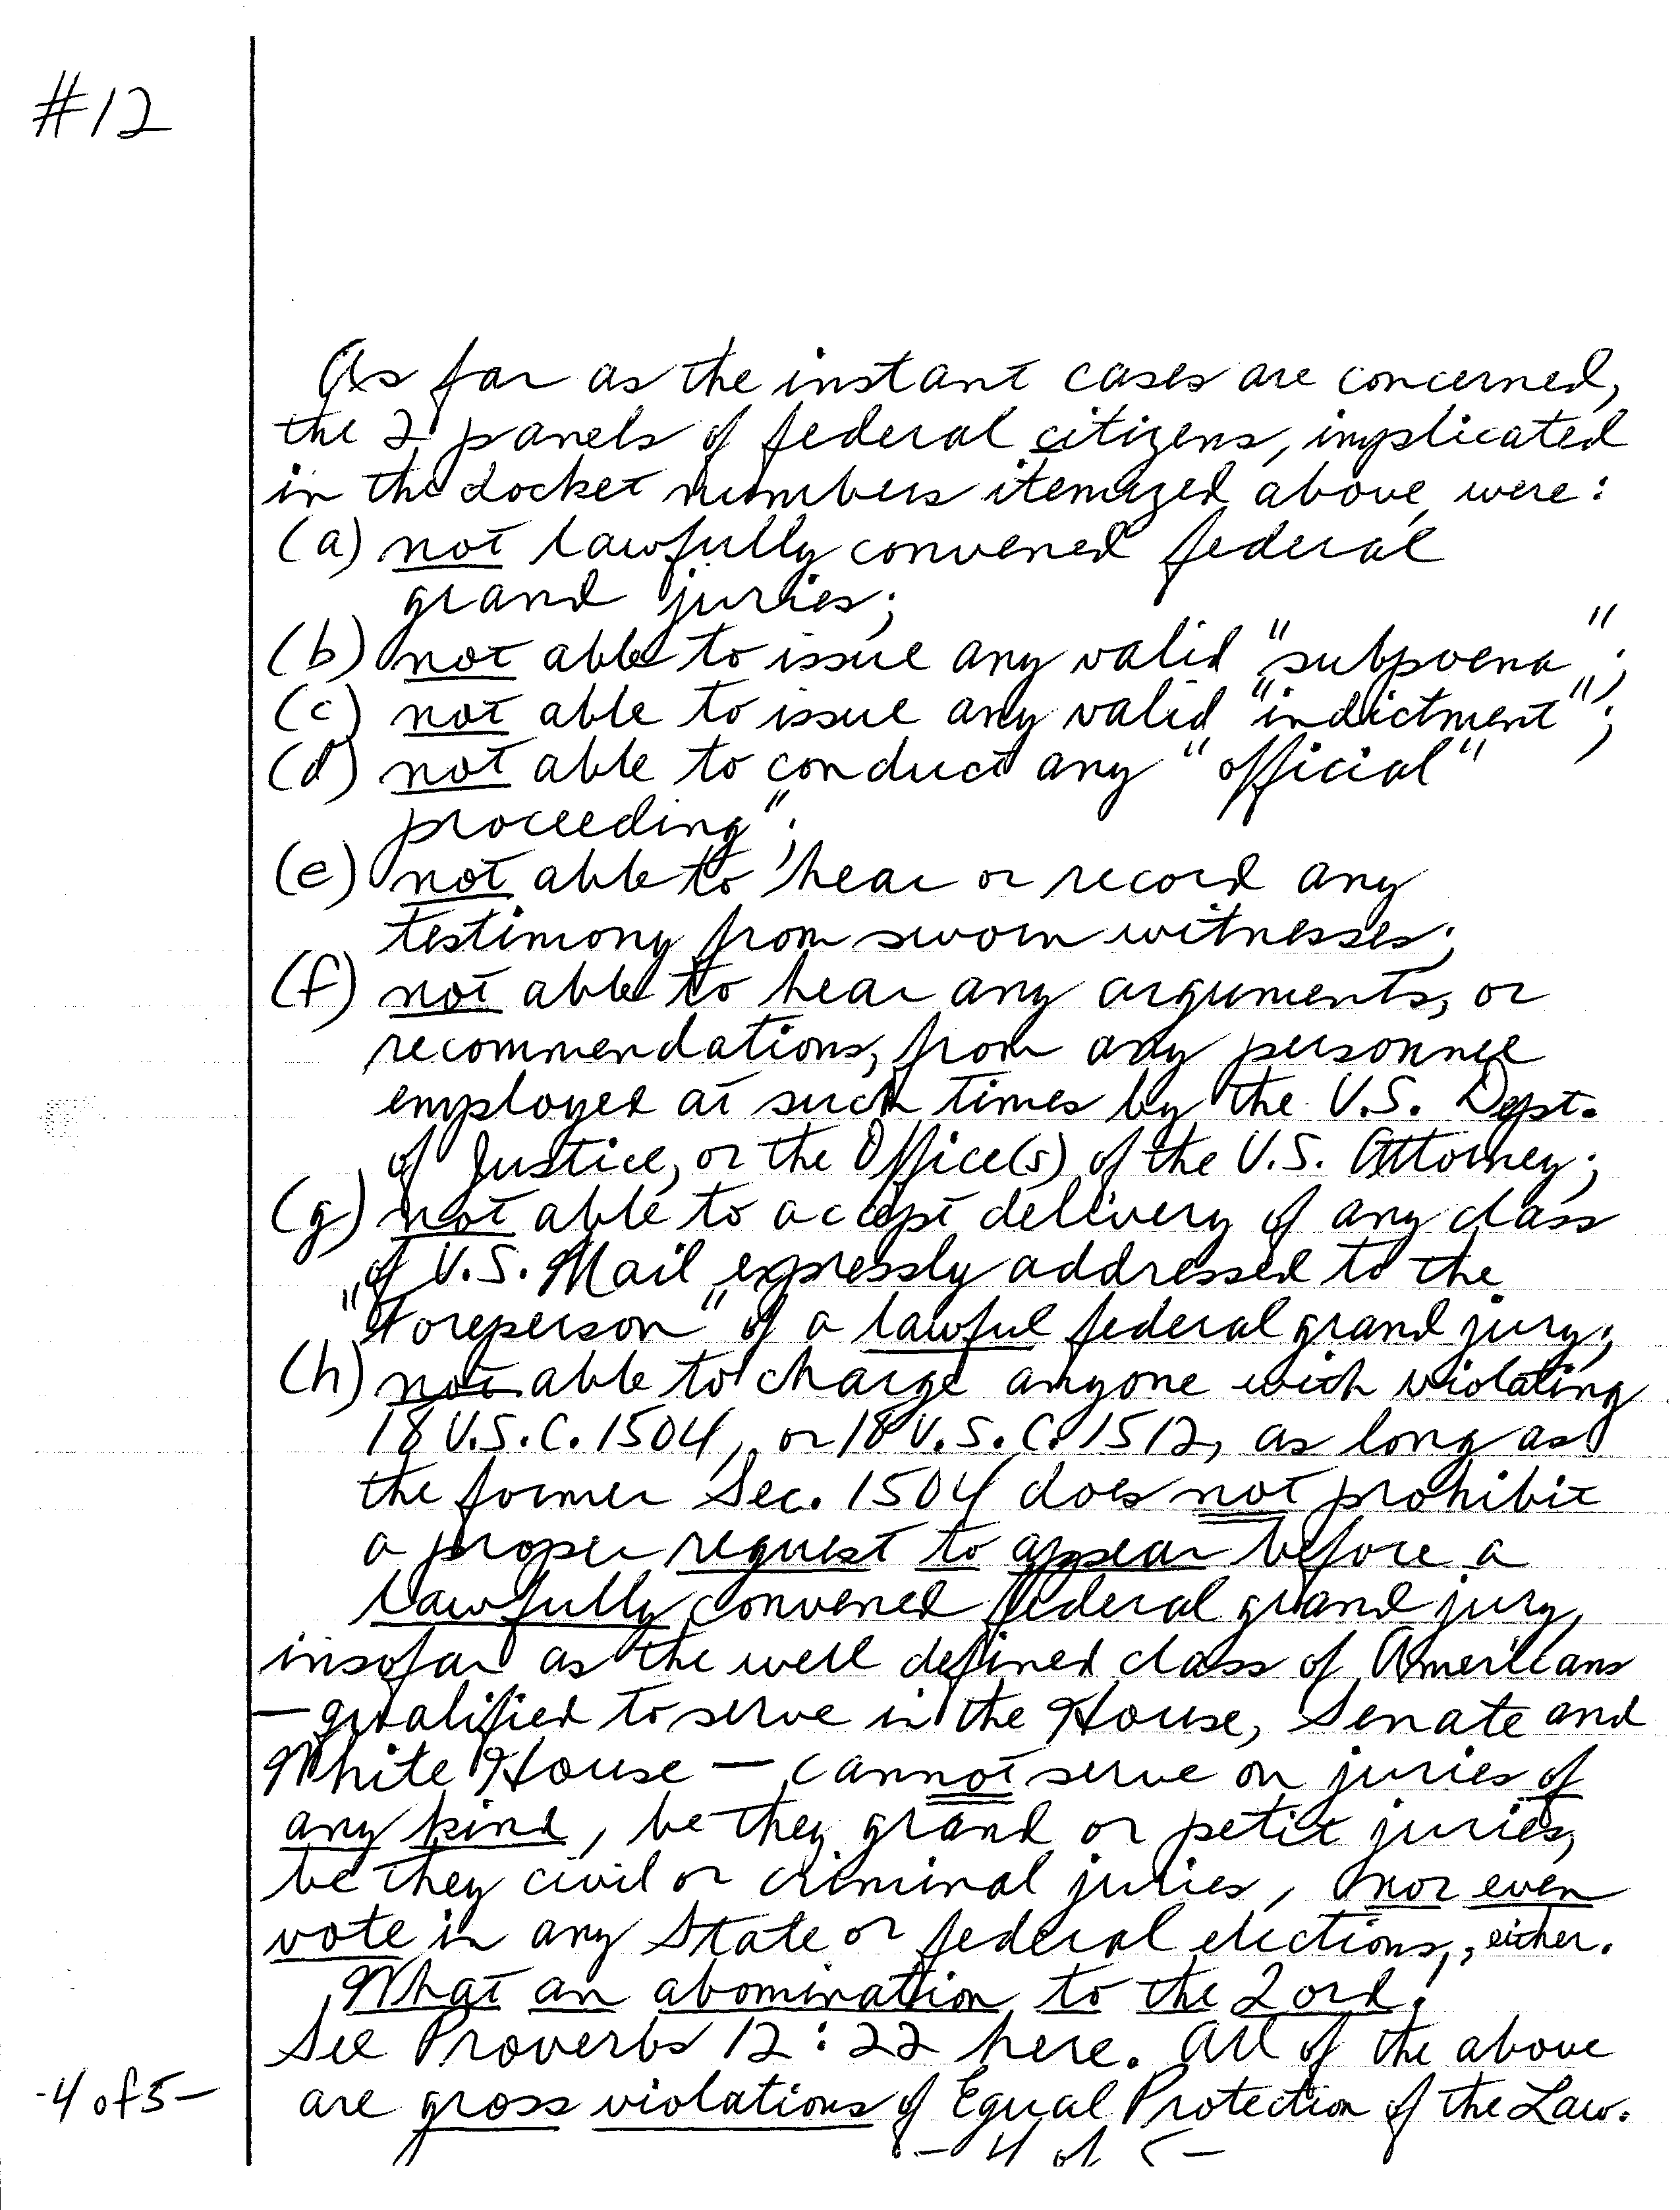 #12
As far as the instant cases are concerned,
the 2 panels of federal citizens, implicated
in the docket numbers itemized above, were:
(a) not lawfully convened federal
grand juries;
(b) not able to issue any valid "subpoena";
(c) not able to issue any valid "indictment";
(d) not able to conduct any "official"
proceeding";
(e) not able to hear or record any
testimony from sworn witnesses;
(f) not able to hear any arguments, or
recommendations, from any personnel
employed at such times by the U.S. Dept.
of Justice, or the Office(s) of the U.S. Attorney;
(g) not able to accept delivery of any class
of U.S. Mail expressly addressed to the
"Foreperson" of a lawful federal grand jury;
(h) not able to charge anyone with violating
18 U.S.C. 1504, or 18 U.S.C. 1512, as long as
the former Sec. 1504 does not prohibit
a proper request to appear before a
lawfully convened federal grand jury,
insofar as the well defined class of Americans
— qualified to serve in the House, Senate and
White House — cannot serve on juries of
any kind, be they grand or petit juries,
be they civil or criminal juries, nor even
vote in any State or federal elections, either.
What an abomination to the Lord!
See Proverbs 12:22 here. All of the above
are gross violations of Equal Protection of the Law.
-4 of 5-
- 4 of 5 -